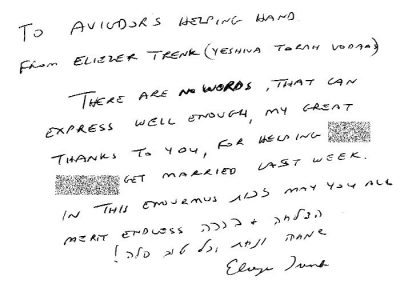 TO AVIGDOR'S HELPING HAND
FROM ELIEZER TRENK (YESHIVA TORAH VODAAS)
THERE ARE NO WORDS, THAT CAN
EXPRESS WELL ENOUGH, MY GREAT
THANKS TO YOU, FOR HELPING
GET MARRIED LAST WEEK.
IN THIS ENORMUS זכות MAY YOU ALL
MERIT ENDLESS ברכה + הצלחה
שמחה ונחת וכל טוב סלה!
Eliezer Trenk